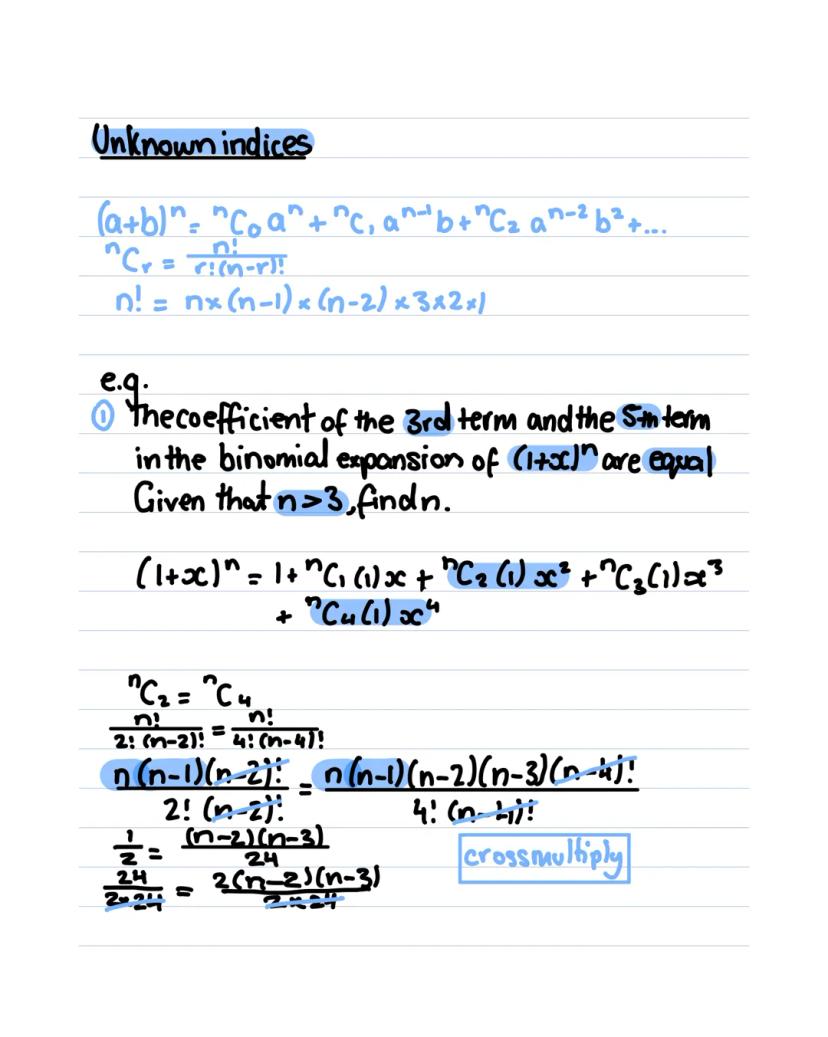 Unknown indices
(a+b)ⁿ = ⁿC₀ aⁿ + ⁿC₁ aⁿ⁻¹b + ⁿC₂ aⁿ⁻² b² + ...
ⁿCᵣ = n!/r!(n-r)!
n! = n×(n-1)×(n-2)×3×2×1
e.g.
① The coefficient of the 3rd term and the 5th term
in the binomial expansion of (1+x)ⁿ are equal
Given that n>3, find n.
(1+x)ⁿ = 1 + ⁿC₁(1)x + ⁿC₂(1)x² + ⁿC₃(1)x³
+ ⁿC₄(1)x⁴
ⁿC₂ = ⁿC₄
n!/2!(n-2)! = n!/4!(n-4)!
n(n-1)(n-2)!/2!(n-2)! = n(n-1)(n-2)(n-3)(n-4)!/4!(n-4)!
1/2 = (n-2)(n-3)/24
crossmultiply
24/2×24 = 2(n-2)(n-3)/2×24